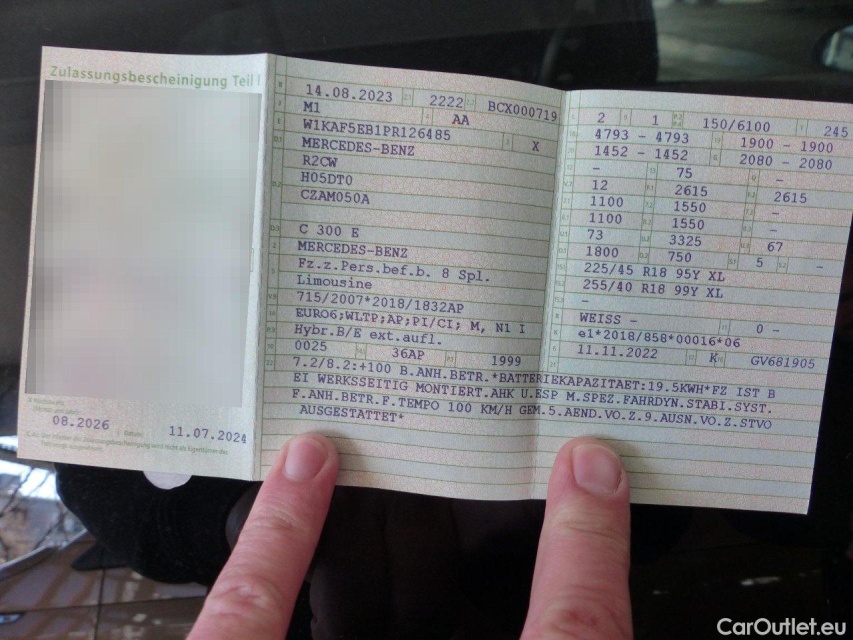 Zulassungsbescheinigung Teil I
08.2026
11.07.2024
14.08.2023 2222 BCX000719
M1 AA
W1KAF5EB1PR126485 X
MERCEDES-BENZ
R2CW
H05DT0
CZAM050A
C 300 E
MERCEDES-BENZ
Fz.z.Pers.bef.b. 8 Spl.
Limousine
715/2007*2018/1832AP
EURO6;WLTP;AP;PI/CI; M, N1 I
Hybr.B/E ext.aufl.
0025 36AP 1999
2 1 150/6100 245
4793 - 4793 1900 - 1900
1452 - 1452 2080 - 2080
- 75 -
12 2615 2615
1100 1550 -
1100 1550 -
73 3325 67
1800 750 5 -
225/45 R18 95Y XL
255/40 R18 99Y XL
-
WEISS - 0 -
e1*2018/858*00016*06
11.11.2022 K GV681905
7.2/8.2:+100 B.ANH.BETR.*BATTERIEKAPAZITAET:19.5KWH*FZ IST B
EI WERKSSEITIG MONTIERT.AHK U.ESP M.SPEZ.FAHRDYN.STABI.SYST.
F.ANH.BETR.F.TEMPO 100 KM/H GEM.5.AEND.VO.Z.9.AUSN.VO.Z.STVO
AUSGESTATTET*
CarOutlet.eu